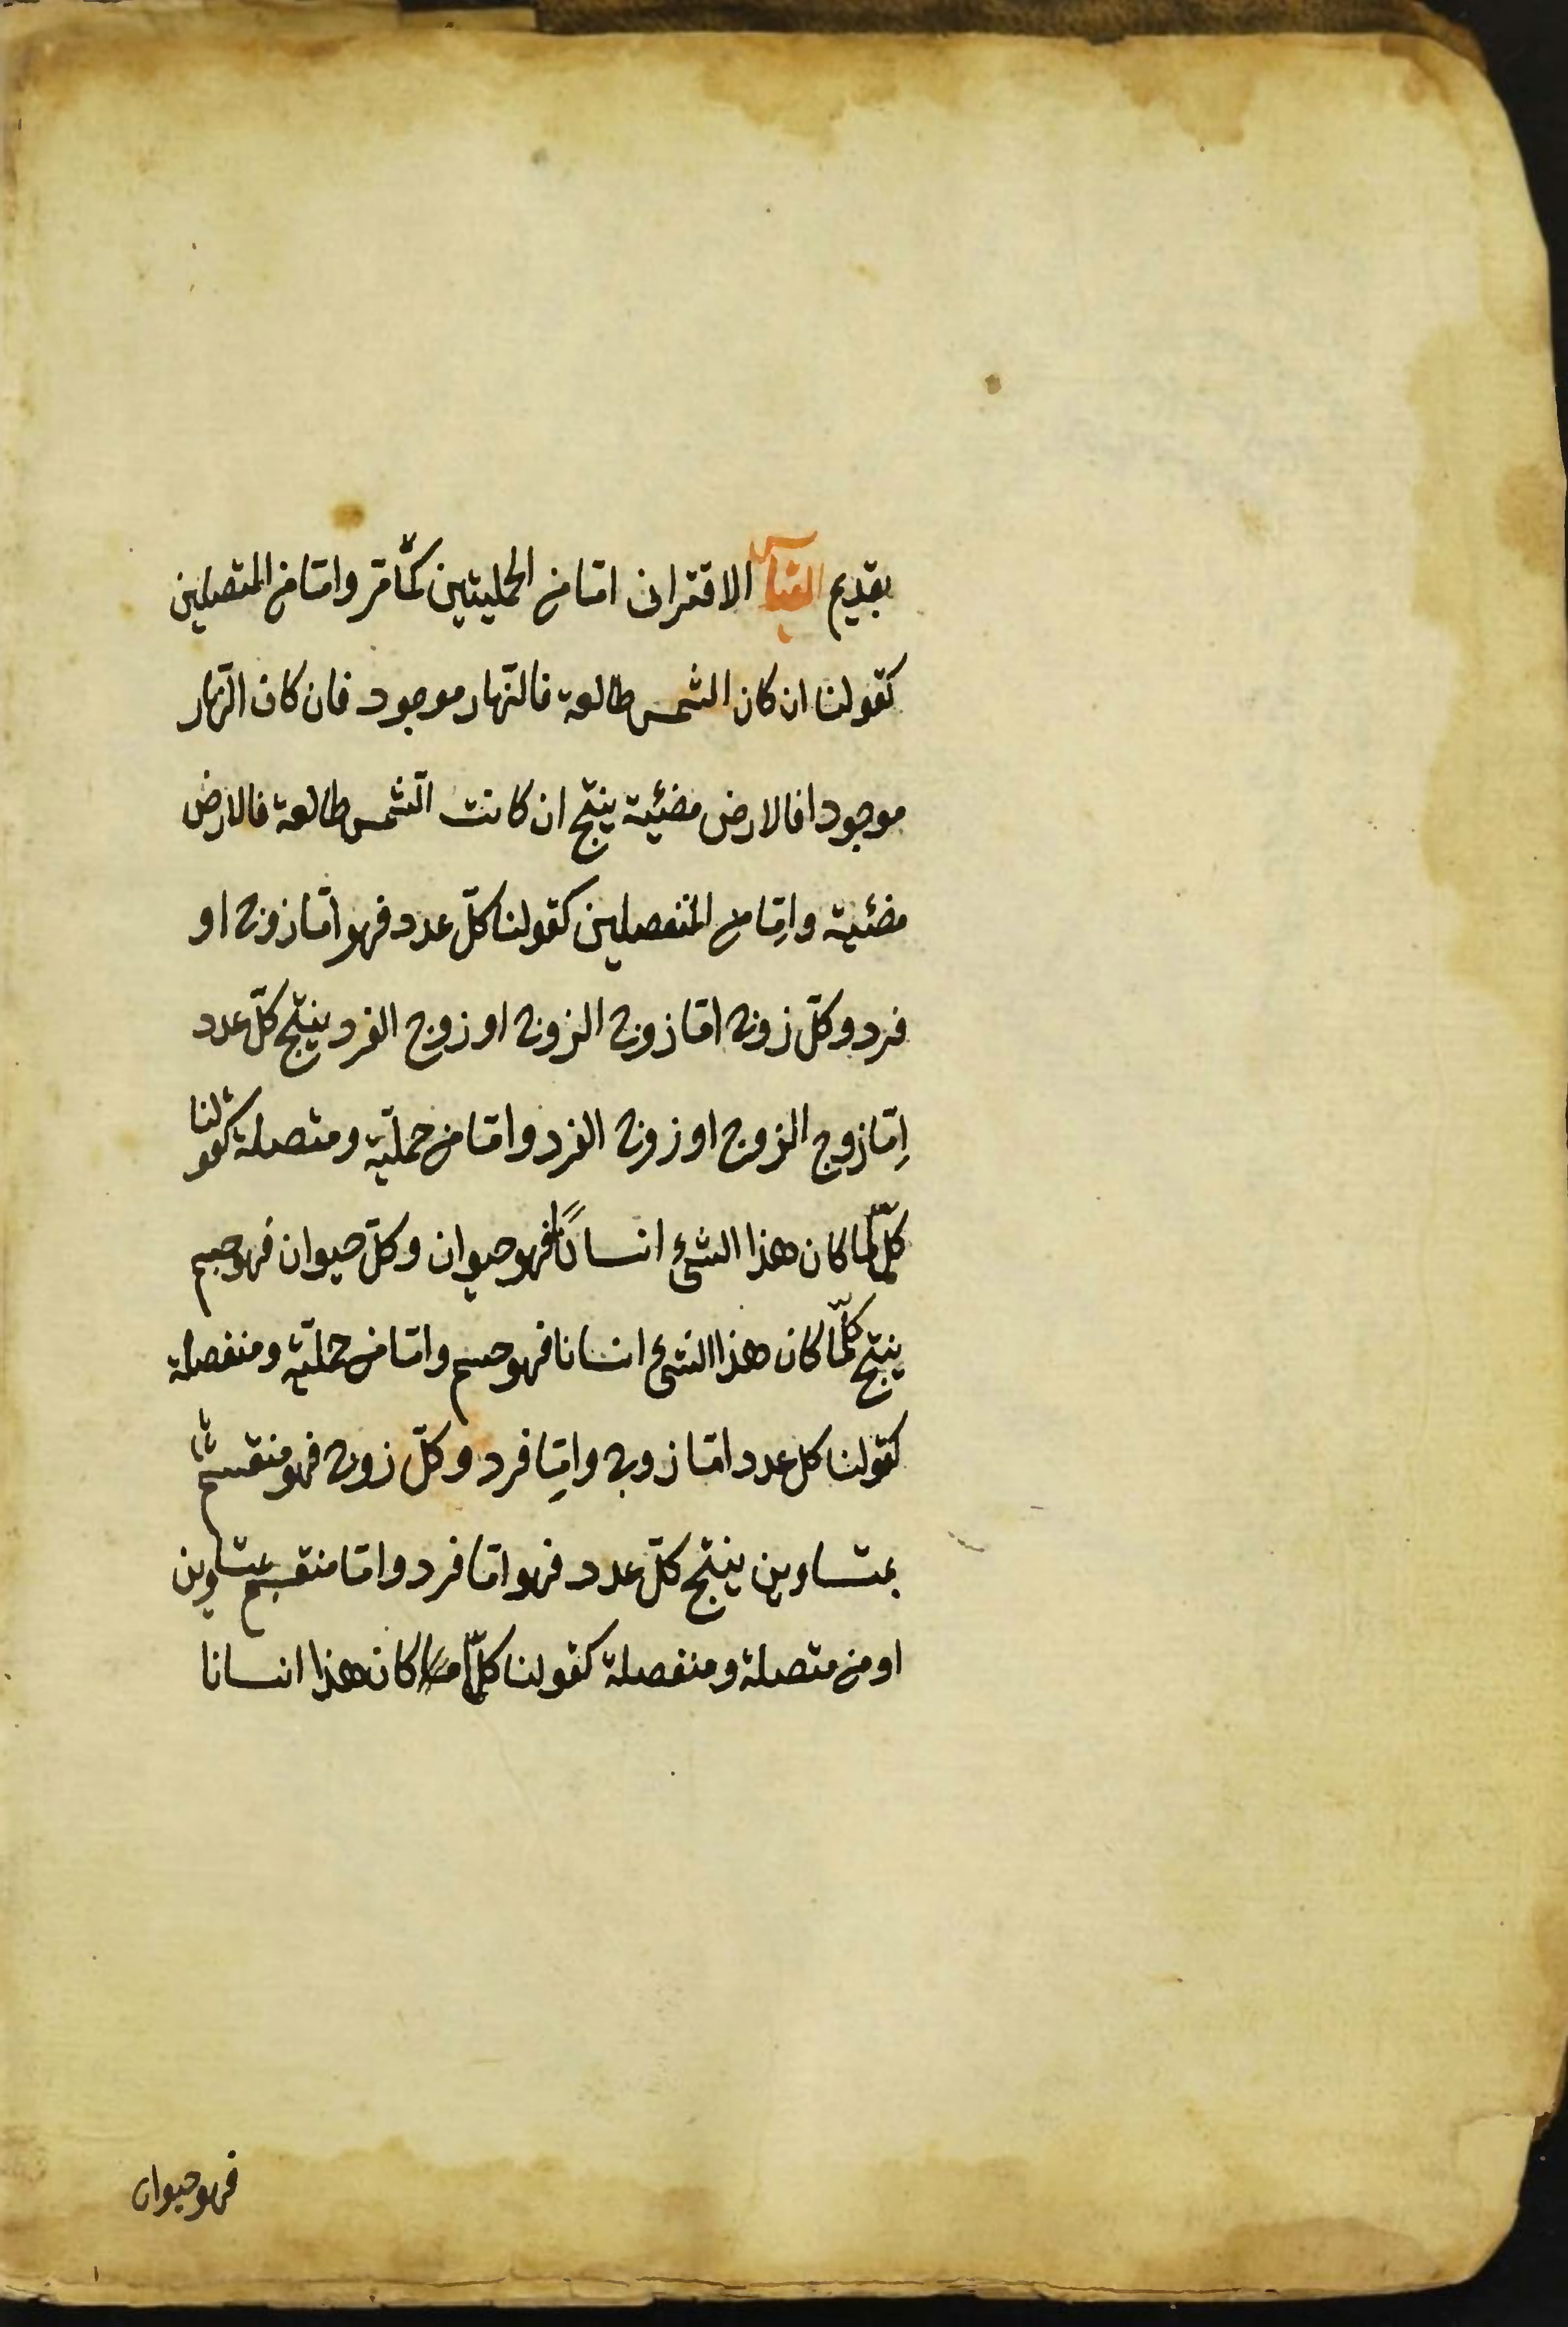 بقديم القياس الاقترانى امّا من الحمليتين كمّا مرّ وامّا من المتصلين
كقولنا ان كان الشمس طالعة فالنّهار موجود فان كان النّهار
موجودا فالارض مضئية ينتج ان كانت الشّمس طالعة فالارض
مضئية وامّا من المنفصلين كقولنا كلّ عدد فهو امّا زوج او
فرد وكلّ زوج امّا زوج الزوج او زوج الفرد ينتج كلّ عدد
اِمّا زوج الزوج او زوج الفرد وامّا من حمليّة ومتصلة كقولنا
كلّما كان هذا الشئ انسانًا فهو حيوان وكلّ حيوان فهو جسم
ينتج كلّما كان هذا الشئ انسانا فهو جسم وامّا من حمليّة ومنفصلة
كقولنا كل عدد امّا زوج وامِّا فرد وكلّ زوج فهو منقسم
بمتساوين ينتج كلّ عدد فهو امّا فرد وامّا منقسم بمتساوين
او من متصلة ومنفصلة كقولنا كلّما كان هذا انسانا
فهو حيوان